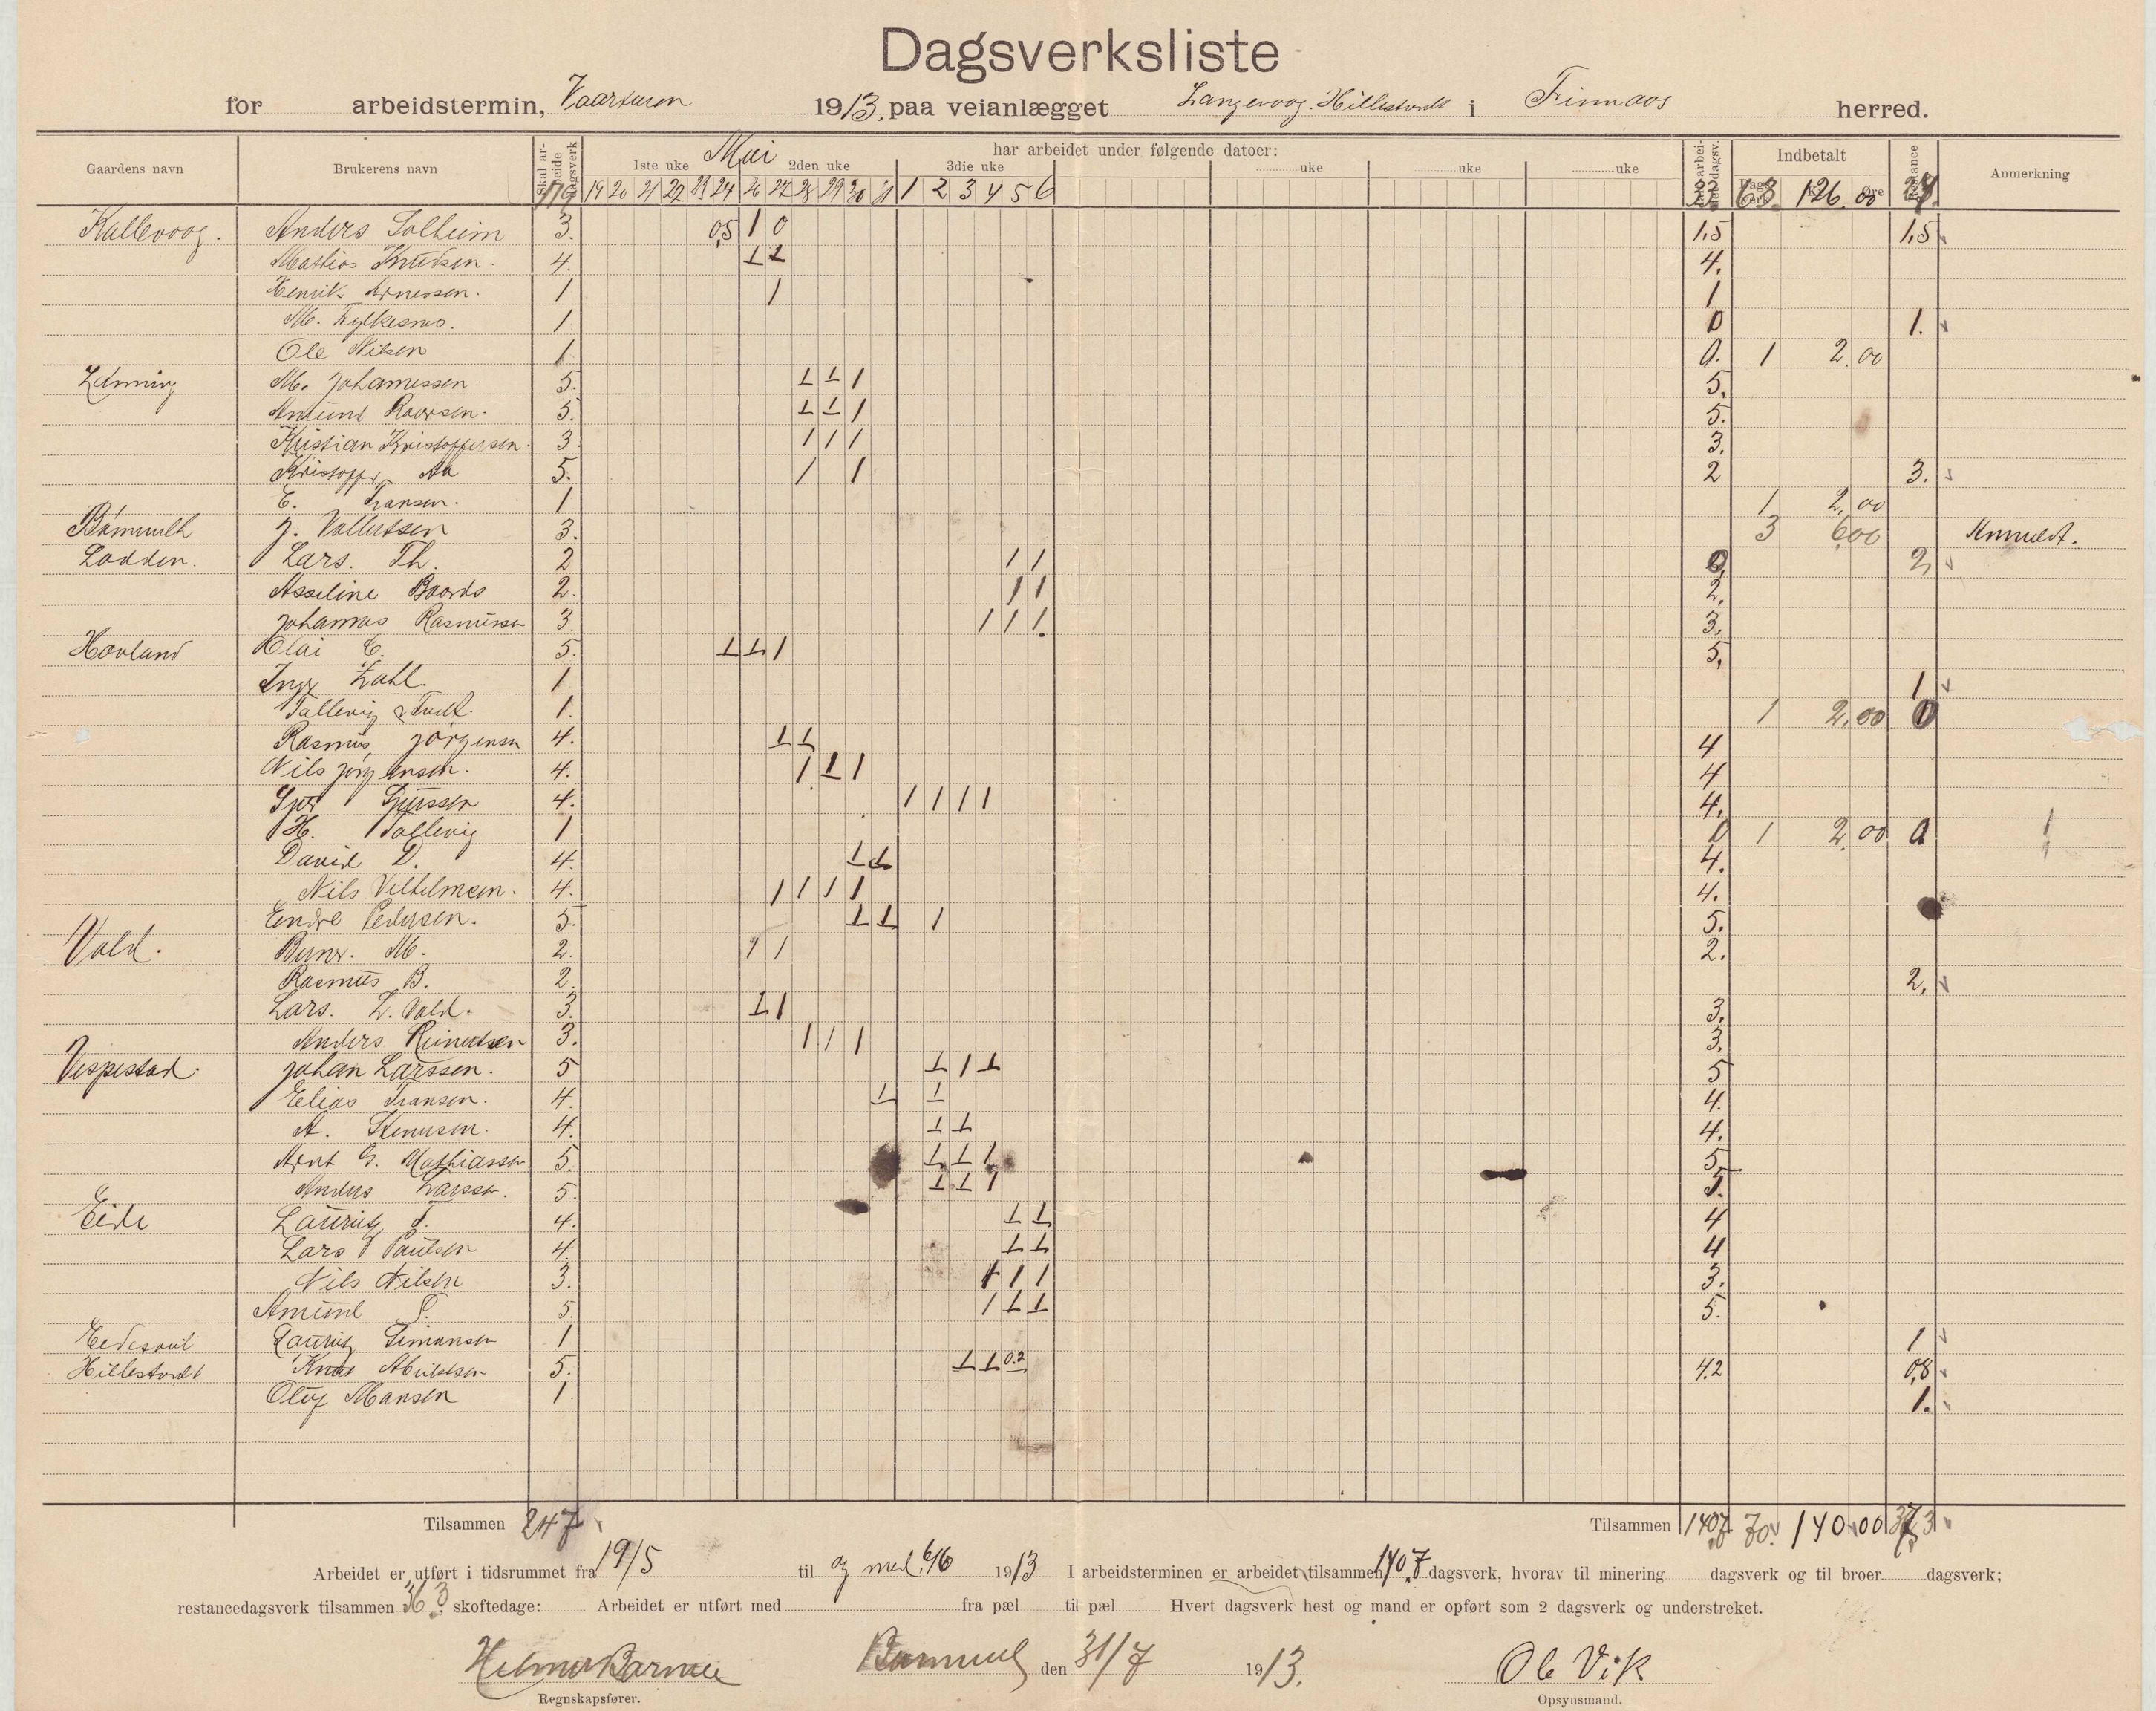 Dagsverksliste
for arbeidstermin, Vaarturen 1913. paa veianlægget Langevaag. Hillestvedt i Finnaas herred.
Gaardens navn Brukerens navn Skal arbeide dagsverk Mai har arbeidet under følgende datoer: Indbetalt Anmerkning
1ste uke 2den uke 3die uke uke uke uke
179 19 20 21 22 23 24 26 27 28 29 30 31 1 2 3 4 5 6 63 126.00
Kallevaag. Anders Solheim 3. 0,5 1 0 1,5 1,5
Mathias Knutsen. 4. 1 1 4.
Henrik Arnessen. 1 1 1
M. Fylkesnes. 1 0 1.
Ole Nilsen 1 0. 1 2.00
Lønning M. Johannessen 5. 1 1 1 5.
Amund Roarsen. 5. 1 1 1 5.
Kristian Kristoffersen. 3. 1 1 1 3.
Kristoffer Aa 5. 1 1 2 3.
E. Hansen. 1 1 2,00
Bømmelh J. Vallertsen 3. 3 6,00 Anmeldt.
Lodden. Lars. Th. 2 1 1 0 2
Asseline Baards 2. 1 1 2.
Johannes Rasmussen 3. 1 1 1. 3.
Hovland Olai E. 5. 1 1 1 5.
Inga Dahl. 1 1
Tallevig 1. 1 2,00 0
Rasmus Jørgensen 4. 1 1 4
Nils Jørgensen. 4. 1 1 1 4
Sjur Sjurssen 4. 1 1 1 1 4.
H. Tallevig 1 0 1 2.00 0
David D. 4. 1 1 4.
Nils Vilhelmsen. 4. 1 1 1 1 4.
Endre Pedersen. 5. 1 1 1 5.
Vold. M. 2. 1 1 2.
Rasmus B. 2. 2.
Lars. L. Vold. 3. 1 1 3.
Anders Reinertsen 3. 1 1 1 3.
Vespestad. Johan Larssen. 5 1 1 1 5
Elias Hansen. 4. 1 1 4.
A. Stenersen. 4. 1 1 4.
Arnt G. Mathiassen 5. 1 1 1 5.
Anders Larssen. 5. 1 1 1 5.
Eide Lauritz J. 4. 1 1 4
Lars Paulsen 4. 1 1 4
Nils Nilsen 3. 1 1 1 3.
Amund S. 5. 1 1 1 5.
Lauritz Simonsen 1 1
Hillestvedt Knut 5. 1 1 0.2 4.2 0,8
Oluf Mansen 1. 1.
Tilsammen 247 Tilsammen 140,7 70. 140.00
Arbeidet er utført i tidsrummet fra 19/5 til og med 6/6 1913 I arbeidsterminen er arbeidet tilsammen 140,7 dagsverk, hvorav til minering dagsverk og til broer dagsverk;
restancedagsverk tilsammen 36.3 skoftedage: Arbeidet er utført med fra pæl til pæl Hvert dagsverk hest og mand er opført som 2 dagsverk og understreket.
Bømmel den 31/7 1913. Ole Vik
Regnskapsfører. Opsynsmand.